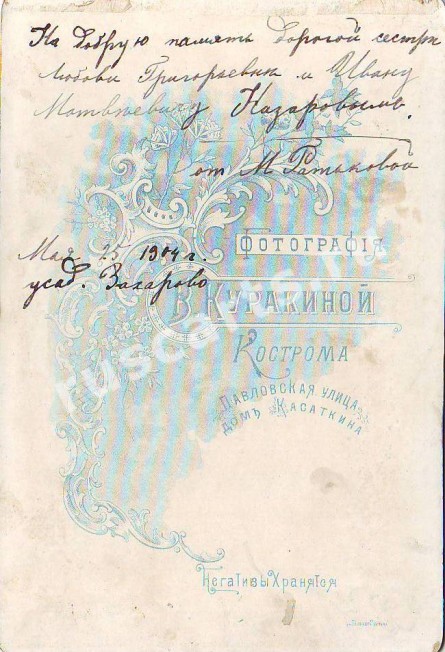 На добрую память дорогой сестре
Любови Григорьевне и Ивану
Матвѣевичу Назаровымъ.
от М. Ратьковой
Мая 25 1904 г.
усад. Захарово
Фотографія
В. Куракиной
Кострома
Павловская улица
домъ Касаткина
Негативы Хранятся